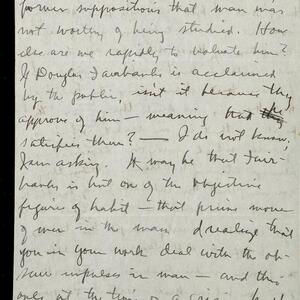 former suppositions that man was
not worthy of being studied. How
else are we rapidly to evaluate him?
If Douglas Fairbanks is acclaimed
by the public, isn't it because they
approve of him — meaning that he
satisfies them? — I do not know,
I am asking. It may be that Fair-
banks is but one of the objective
figures of habit — that prime mover
of men in the mass. I realize that
you in your work deal with the ob-
scure impulses in man — and this
only at the